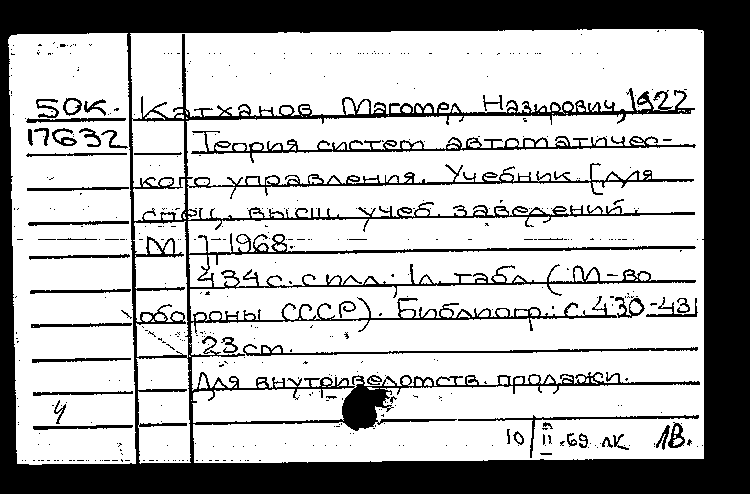 50К. Катханов, Магомед Назирович, 1922
17632 Теория систем автоматичес-
кого управления. Учебник [для
спец. высш. учеб. заведений.
М.], 1968.
434 с. с илл.; 1 л. табл. (М-во
обороны СССР). Библиогр.: с. 430-431
23 см.
Для внутриведомств. продажи.
10/II.69 ЛК 1В.